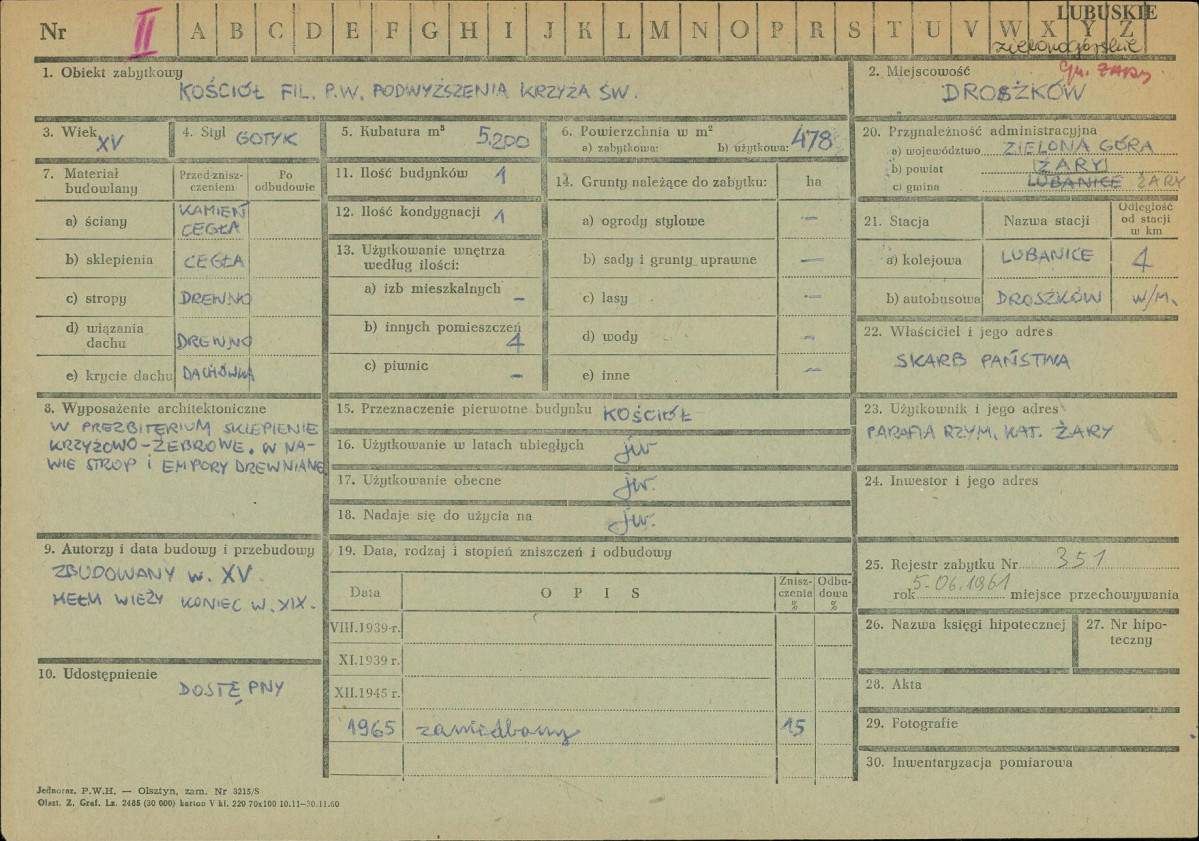 LUBUSKIE
Nr II A B C D E F G H I J K L M N O P R S T U V W X Y Z
zielonogórskie
1. Obiekt zabytkowy
KOŚCIÓŁ FIL. P.W. PODWYŻSZENIA KRZYŻA ŚW.
2. Miejscowość
gm. ŻARY
DROŻKÓW
3. Wiek
XV
4. Styl GOTYK
5. Kubatura m³ 5.200
6. Powierzchnia w m²
a) zabytkowa: b) użytkowa: 478
20. Przynależność administracyjna
a) województwo ZIELONA GÓRA
b) powiat ŻARY
c) gmina LUBANICE ŻARY
7. Materiał budowlany
Przed znisz-
czeniem
Po
odbudowie
a) ściany KAMIEŃ
CEGŁA
b) sklepienia CEGŁA
c) stropy DREWNO
d) wiązania
dachu DREWNO
e) krycie dachu DACHÓWKA
11. Ilość budynków 1
12. Ilość kondygnacji 1
13. Użytkowanie wnętrza
według ilości:
a) izb mieszkalnych –
b) innych pomieszczeń
4
c) piwnic –
14. Grunty należące do zabytku: ha
a) ogrody stylowe –
b) sady i grunty uprawne –
c) lasy –
d) wody –
e) inne –
21. Stacja Nazwa stacji Odległość
od stacji
w km
a) kolejowa LUBANICE 4
b) autobusowa DROSZKÓW W/M.
22. Właściciel i jego adres
SKARB PAŃSTWA
8. Wyposażenie architektoniczne
W PREZBITERIUM SKLEPIENIE
KRZYŻOWO-ŻEBROWE. W NA-
WIE STROP I EMPORY DREWNIANE
15. Przeznaczenie pierwotne budynku KOŚCIÓŁ
16. Użytkowanie w latach ubiegłych jw
17. Użytkowanie obecne jw.
18. Nadaje się do użycia na jw.
23. Użytkownik i jego adres
PARAFIA RZYM. KAT. ŻARY
24. Inwestor i jego adres
9. Autorzy i data budowy i przebudowy
ZBUDOWANY w. XV.
HEŁM WIEŻY KONIEC W. XIX.
19. Data, rodzaj i stopień zniszczeń i odbudowy
Data O P I S Znisz-
czenia
% Odbu-
dowa
%
VIII.1939 r.
XI.1939 r.
XII.1945 r.
1965 zaniedbany 15
25. Rejestr zabytku Nr 351
rok 5.06.1961 miejsce przechowywania
26. Nazwa księgi hipotecznej
27. Nr hipo-
teczny
10. Udostępnienie
DOSTĘPNY
28. Akta
29. Fotografie
30. Inwentaryzacja pomiarowa
Jednoraz. P.W.H. — Olsztyn, zam. Nr 3215/S
Olszt. Z. Graf. Lz. 2485 (30 000) karton V kl. 220 70x100 10.11—30.11.60